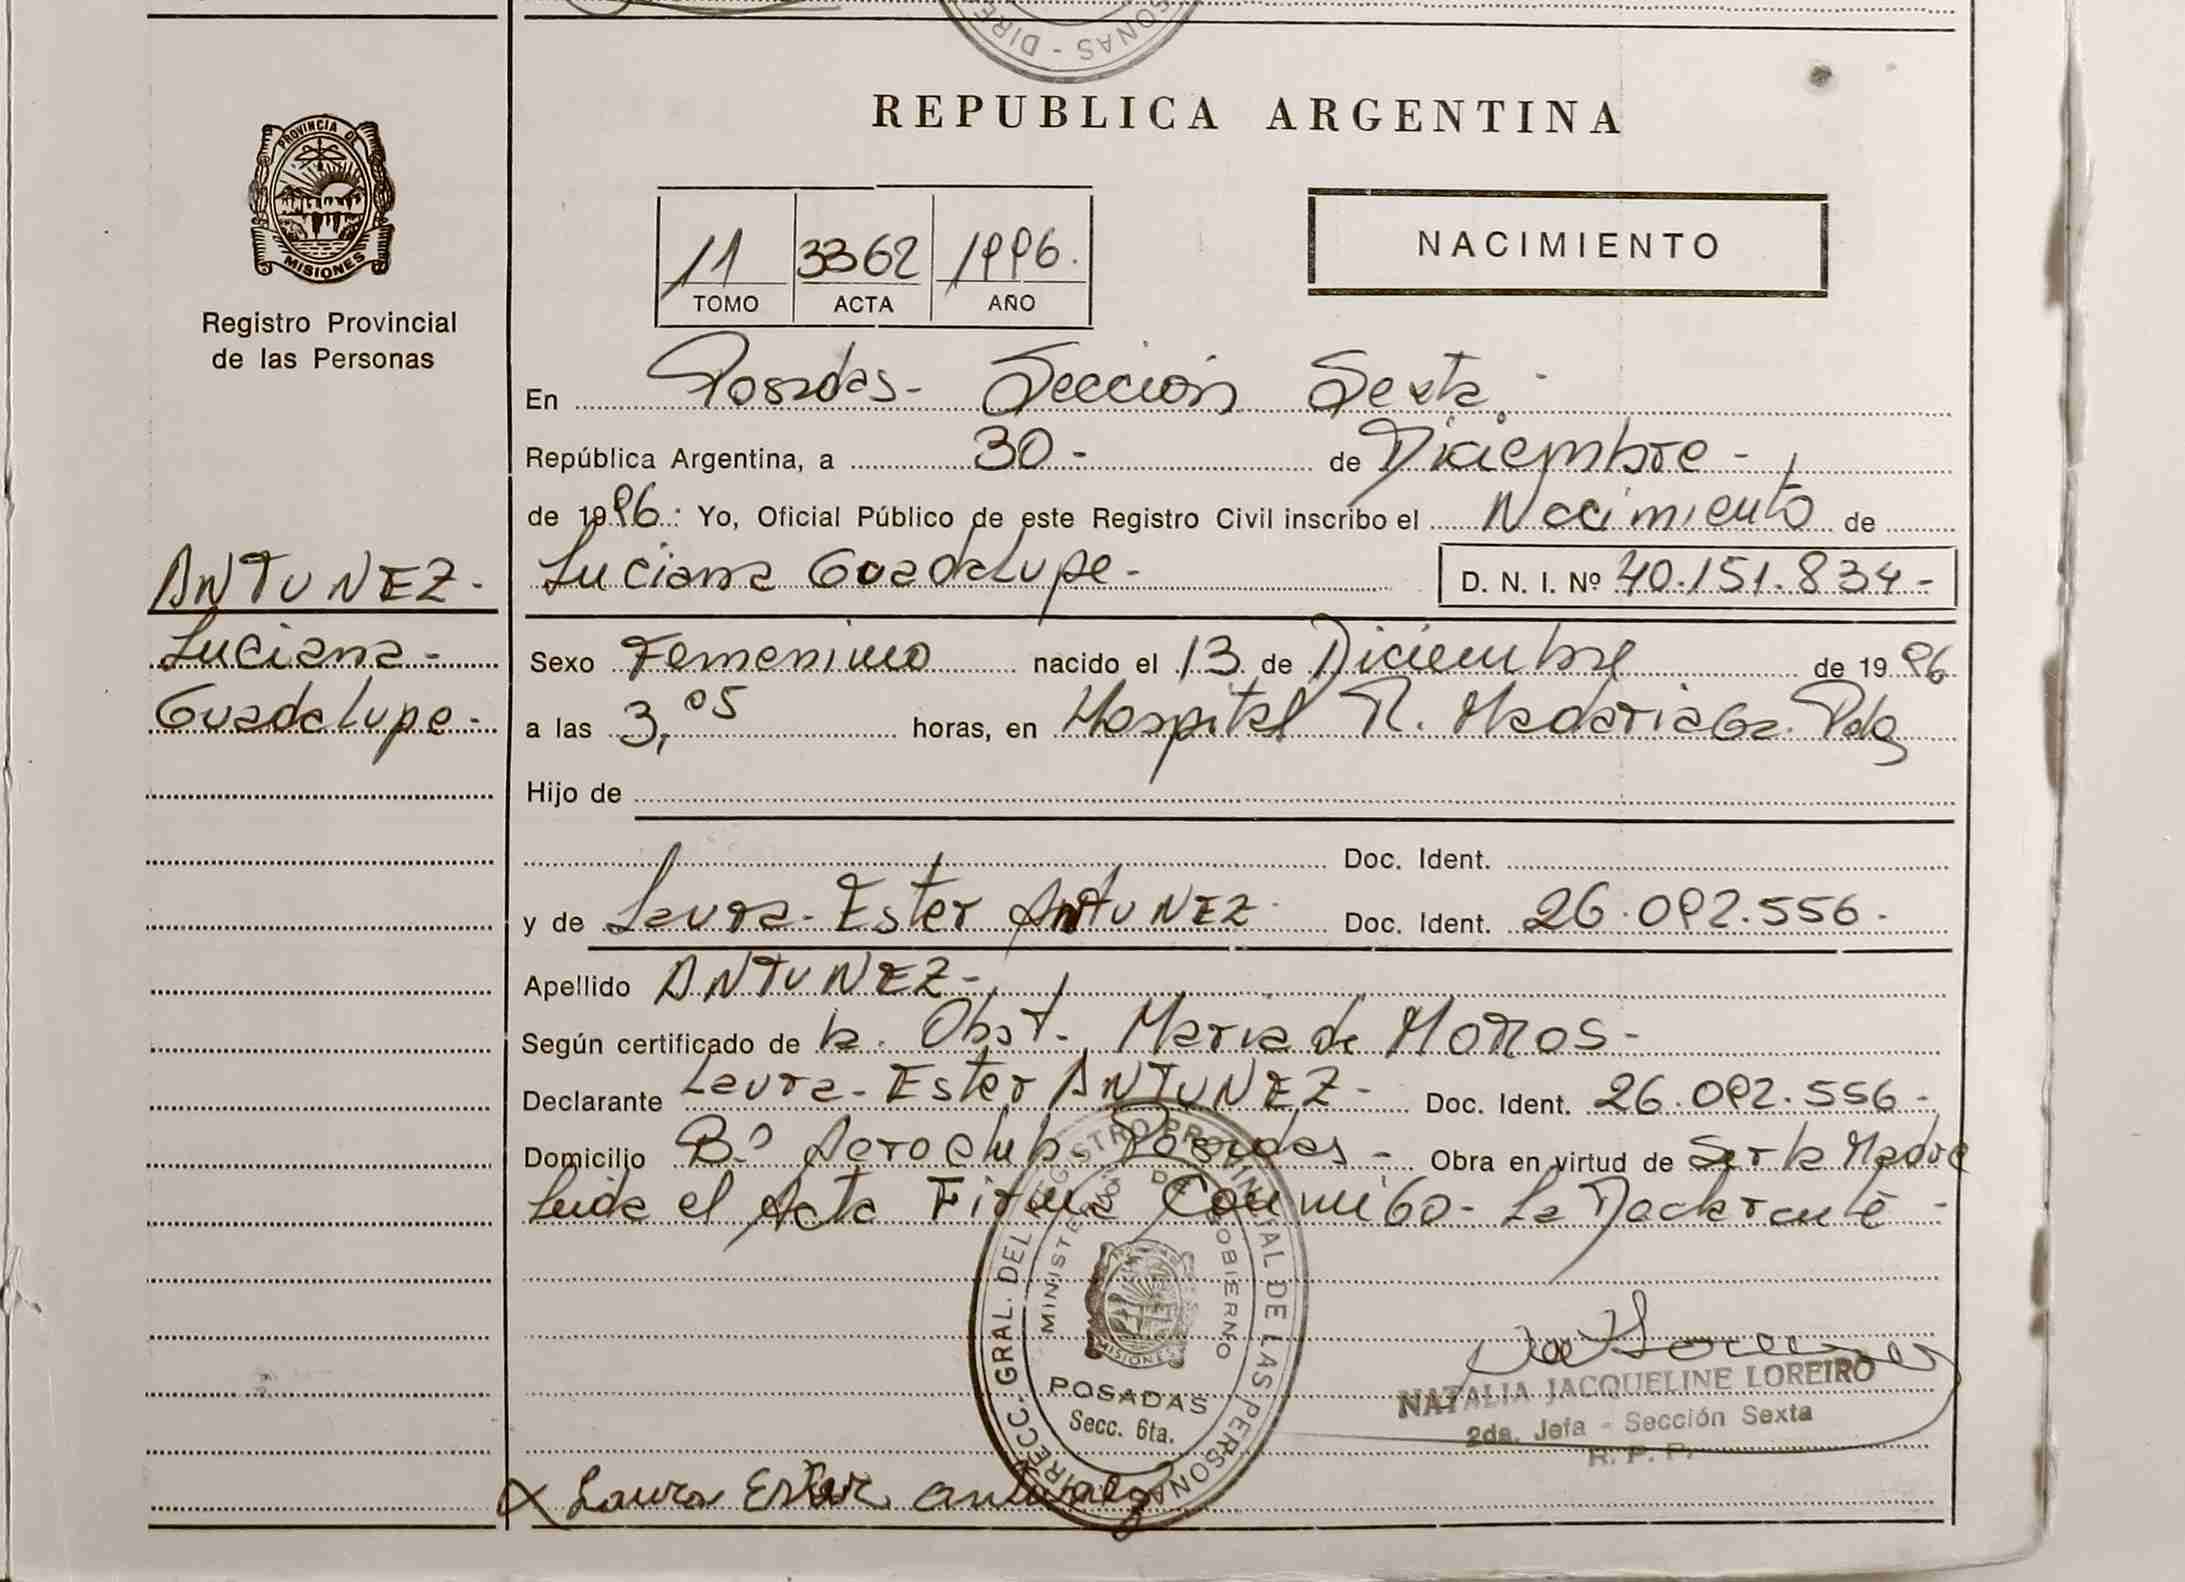 PROVINCIA DE
MISIONES
Registro Provincial
de las Personas
ANTUNEZ-
Luciana-
Guadalupe-
SONAS - DIRE
REPUBLICA ARGENTINA
11 3362 1996.
TOMO ACTA AÑO
NACIMIENTO
En Posadas- Sección Sexta.-
República Argentina, a 30- de Diciembre-
de 1996. Yo, Oficial Público de este Registro Civil inscribo el Nacimiento de
Luciana Guadalupe- D. N. I. Nº 40.151.834-
Sexo Femenino nacido el 13 de Diciembre de 1996
a las 3,05 horas, en Hospital R. Madariaga. Pdas
Hijo de
Doc. Ident.
y de Laura-Ester ANTUNEZ- Doc. Ident. 26.092.556-
Apellido ANTUNEZ-
Según certificado de la Obst. Maria de
Declarante Laura-Ester ANTUNEZ- Doc. Ident. 26.092.556-
Domicilio Bº Aeroclub Posadas- Obra en virtud de Ser la Madre
Leida el Acta Firma Conmigo- La Declarante-
DIRECC. GRAL. DEL REGISTRO PROVINCIAL DE LAS PERSONAS
MINISTERIO DE GOBIERNO
MISIONES
POSADAS
Secc. 6ta.
NATALIA JACQUELINE LOREIRO
2da. Jefa - Sección Sexta
R. P. P.
x Laura Ester antunez